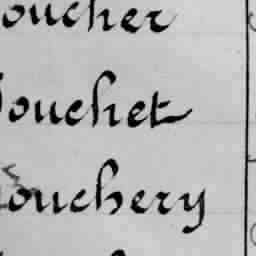 oucher
ouchet
ouchery